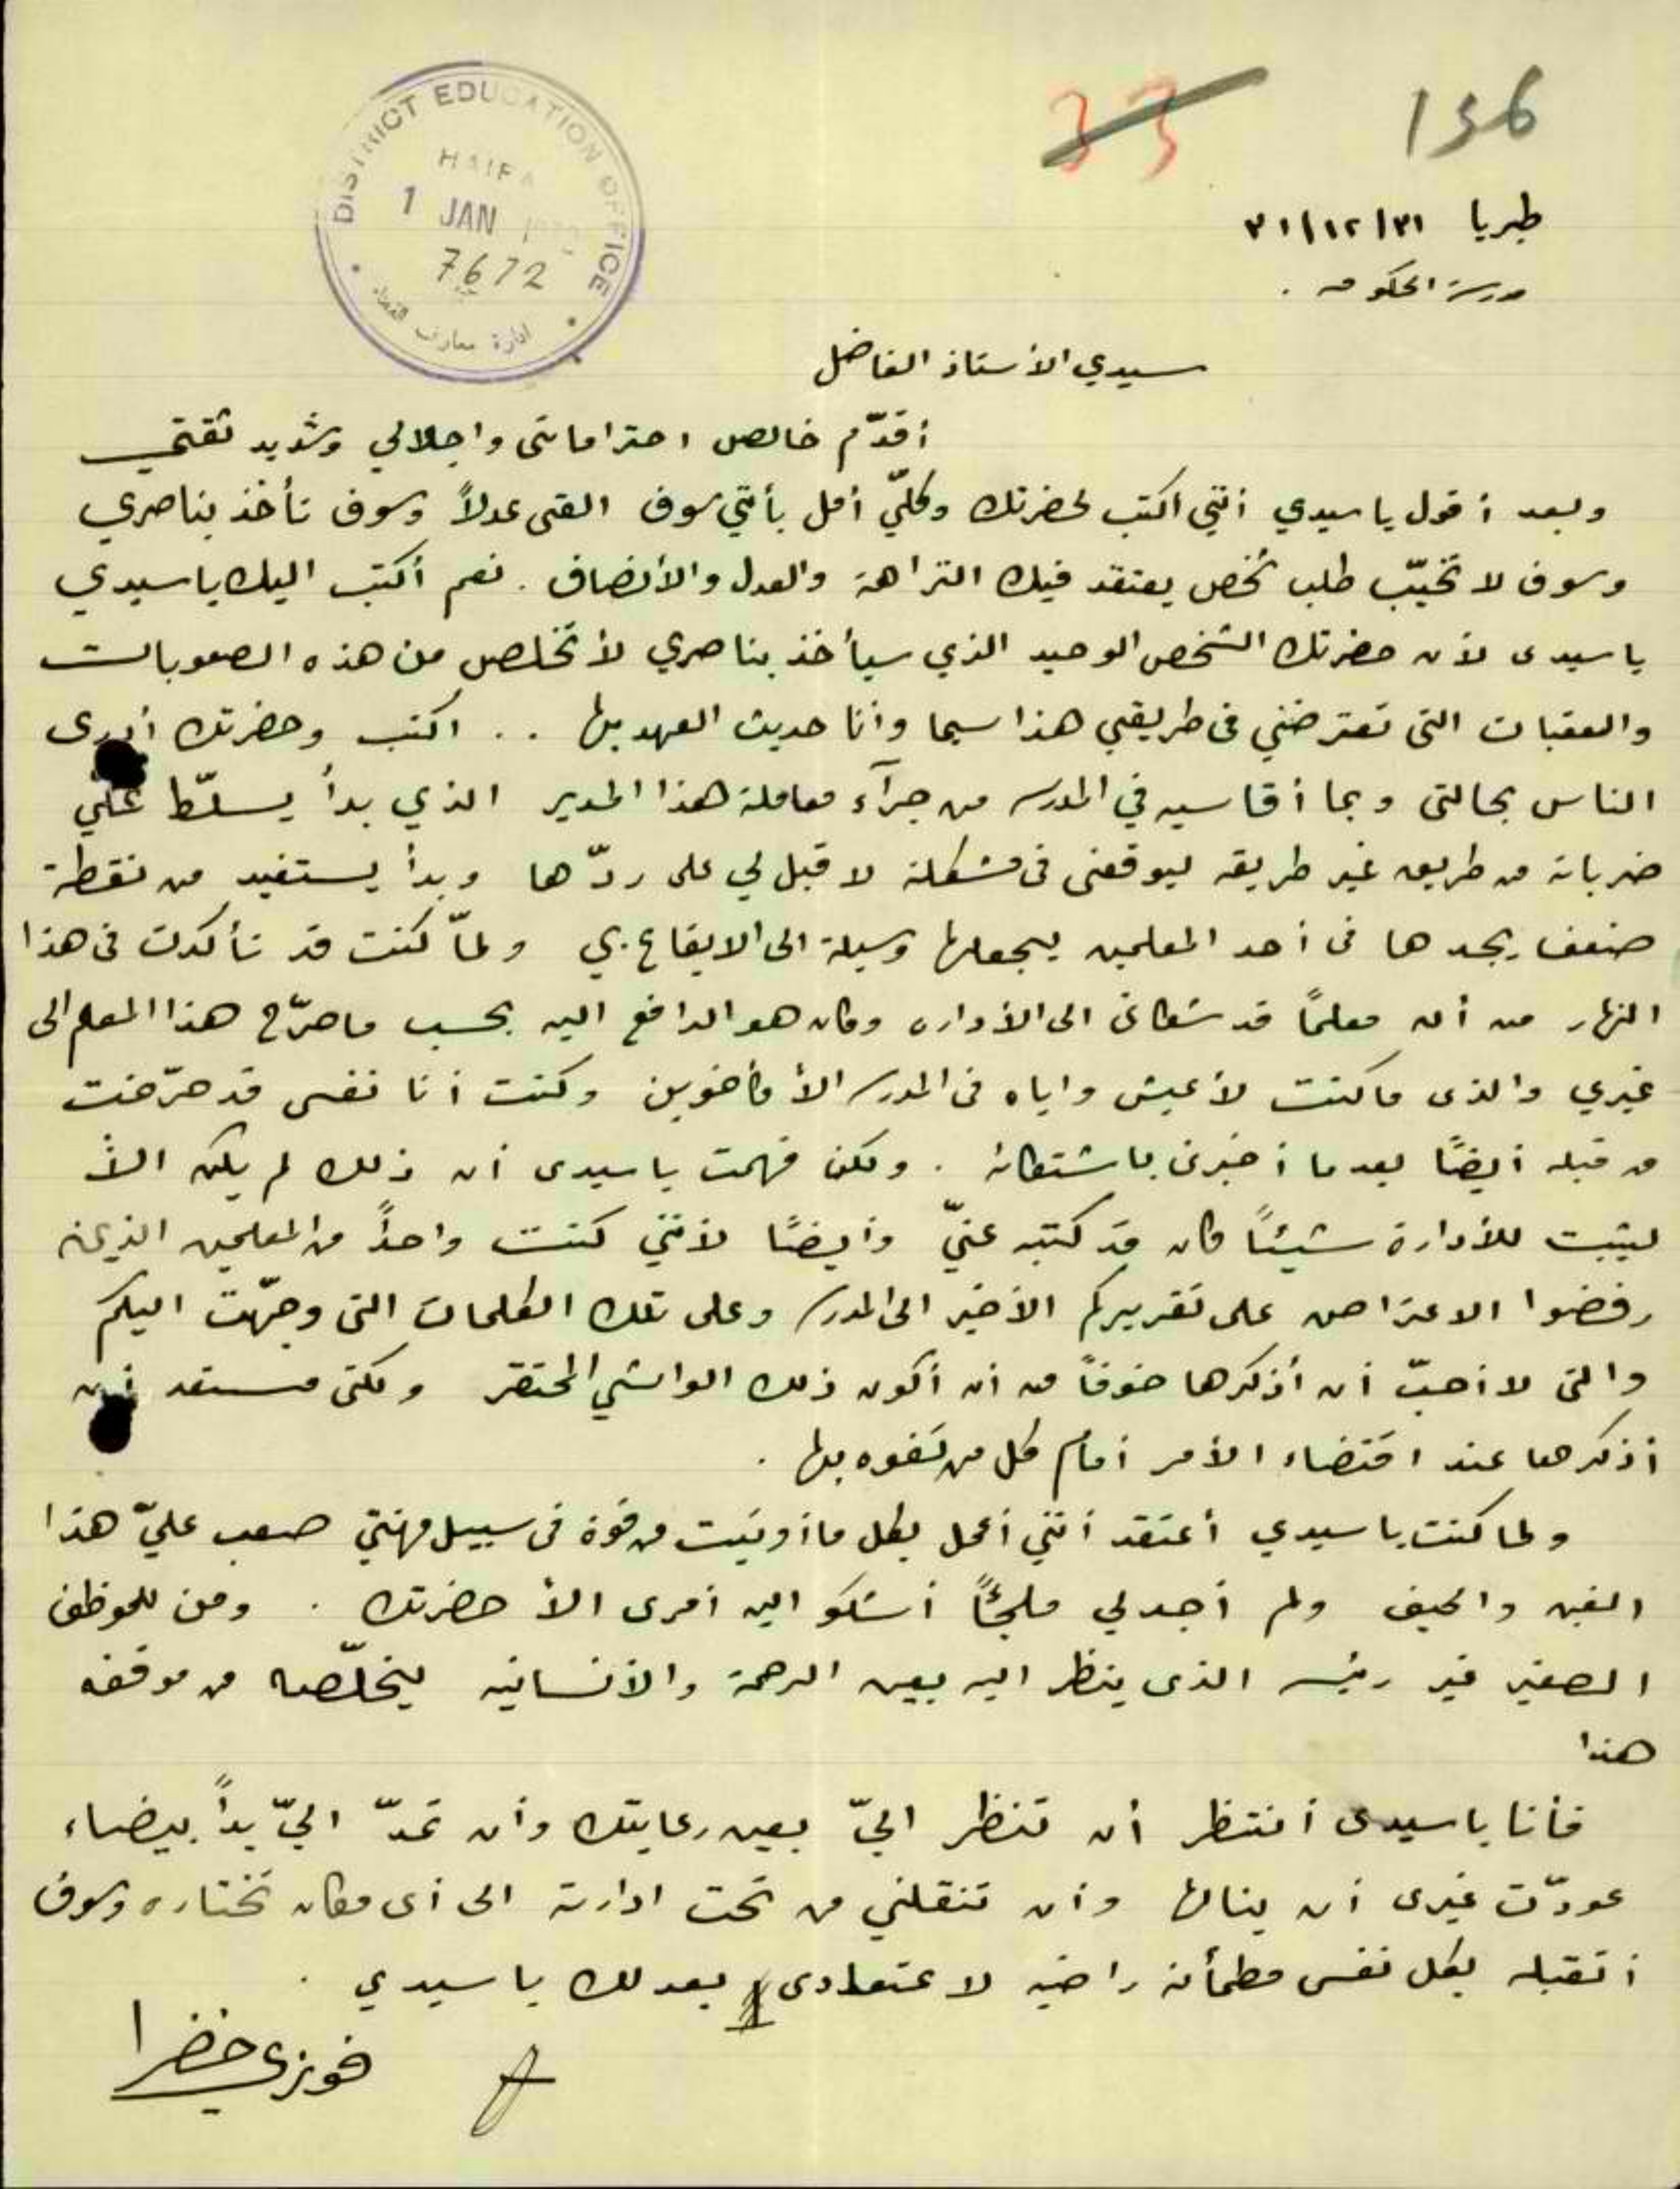 33 136
DISTRICT EDUCATION OFFICE
HAIFA
1 JAN
7672
ادارة معارف القضاء
طبريا ٣١/١٢/٣١
مدرسة الحكومه .
سيدي الأستاذ الفاضل
أقدّم خالص احتراماتى واجلالي وشديد ثقتي
وبعد أقول يا سيدي أنني اكتب لحضرتك وكليّ أمل بأنني سوف القى عدلاً وسوف تأخذ بناصري
وسوف لا تخيّب طلب شخص يعتقد فيك النزاهة والعدل والأنصاف . نعم أكتب اليك يا سيدي
يا سيدى لأن حضرتك الشخص الوحيد الذي سيأخذ بناصري لأتخلص من هذه الصعوبات
والعقبات التى تعترضني فى طريقي هذا سيما وأنا حديث العهد بها .. اكتب وحضرتك أدرى
الناس بحالتى وبما أقاسيه في المدرسه من جرآء معاملة هذا المدير الذي بدأ يسلّط عليّ
ضرباته من طريق غير طريقه ليوقعنى فى مشكلة لا قبل لي على ردّها وبدأ يستفيد من نقطة
ضعف يجدها فى أحد المعلمين ليجعلها وسيلة الى الايقاع بي ولمّا كنت قد تأكدت فى هذا
النهار من أن معلمًا قد شكانى الى الأداره وكان هو الدافع اليه بحسب ما صرّح هذا المعلم الى
غيري والذى ما كنت لأعيش واياه فى المدرسه الأ كأخوين وكنت أنا نفسى قد حرّضت
من قبله أيضًا بعدما أخبرنى باشتكائه . ولكن فهمت يا سيدى أن ذلك لم يكن الأ
ليثبت للأدارة شيئًا كان قد كتبه عنيّ وأيضًا لأنني كنت واحداً من المعلمين الذين
رفضوا الاعتراض على تقريركم الأخير الى المدرسه وعلى تلك الكلمات التى وجّهت اليكم
والتى لا أحبّ أن أذكرها خوفاً من أن أكون ذلك الواشي المحتقر ولكنى مستعد أن
أذكرها عند اقتضاء الأمر أمام كل من تفوه بها .
ولما كنت يا سيدي أعتقد أنني أعمل بكل ما أوتيت من قوة فى سبيل مهنتي صعب عليّ هذا
الغبن والحيف ولم أجد لي ملجئًا أشكو اليه أمرى الأ حضرتك . ومن للموظف
الصغير غير رئيسه الذى ينظر اليه بعين الرحمة والأنسانيه ليخلّصه من موقفه
هذا
فأنا يا سيدى أنتظر أن تنظر اليّ بعين رعايتك وأن تمدّ اليّ يداً بيضاء
عودّت غيرى أن ينالها وأن تنقلني من تحت ادارته الى أى مكان تختاره وسوف
أتقبله بكل نفس مطمأنة راضيه لاعتقادى بعدلك يا سيدي .
فوزي خضرا